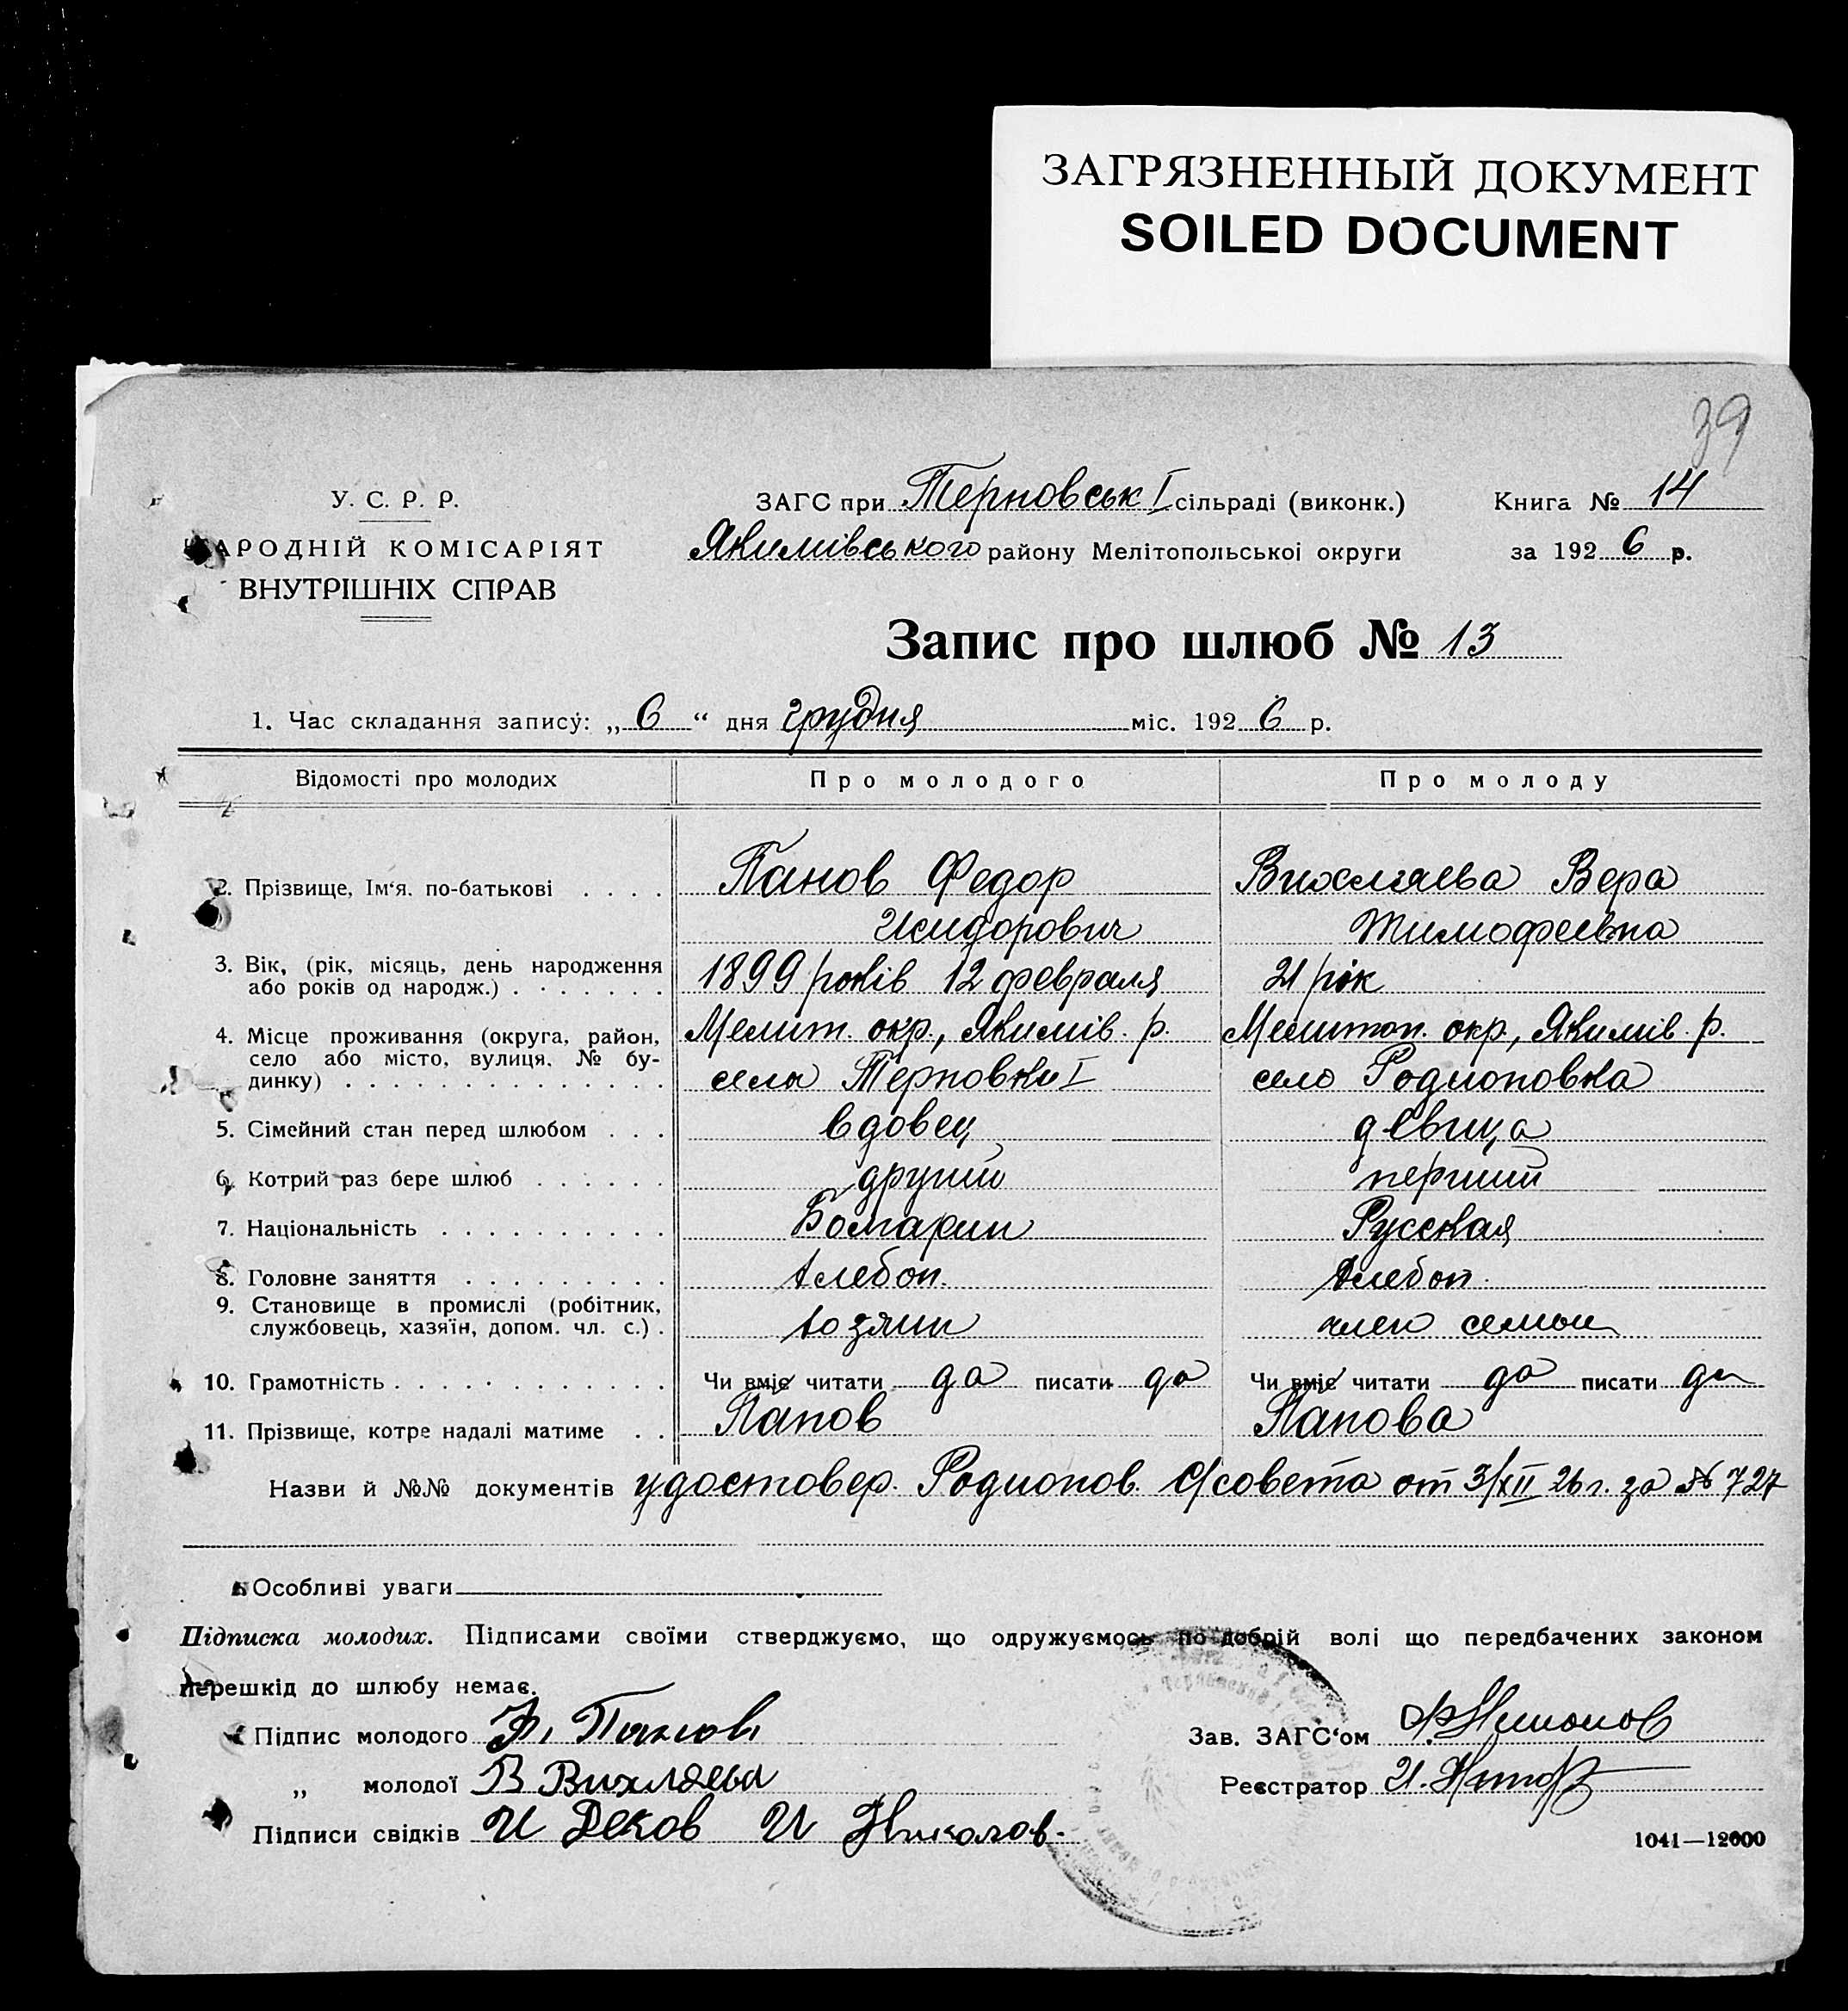 ЗАГРЯЗНЕННЫЙ ДОКУМЕНТ
SOILED DOCUMENT
39
У. С. Р. Р.
НАРОДНІЙ КОМІСАРІЯТ
ВНУТРІШНІХ СПРАВ
ЗАГС при Терновськ I сільраді (виконк.)
Якимівського району Мелітопольської округи
Книга № 14
за 1926 р.
Запис про шлюб № 13
1. Час складання запису: „6“ дня грудня міс. 1926 р.
Відомості про молодих Про молодого Про молоду
2. Прізвище, Ім'я, по-батькові . . . . Панов Федор Вихляева Вера
Исидорович Тимофеевна
3. Вік, (рік, місяць, день народження 1899 років 12 февраля 21 рік
або років од народж.) . . . . . . .
4. Місце проживання (округа, район, Мелит. окр., Якимів. р. Мелитоп. окр., Якимів. р.
село або місто, вулиця, № бу-
динку) . . . . . . . . . . . . . . села Терновки I село Родионовка
5. Сімейний стан перед шлюбом . . . вдовец девица
6. Котрий раз бере шлюб . . . . . . другий перший
7. Національність . . . . . . . . . . Болгарин Русская
8. Головне заняття . . . . . . . . . хлебоп. хлебоп.
9. Становище в промислі (робітник,
службовець, хазяїн, допом. чл. с.) . хозяин член семьи
10. Грамотність . . . . . . . . . . . . Чи вміє читати да писати да Чи вміє читати да писати да
11. Прізвище, котре надалі матиме . . Панов Панова
Назви й №№ документів удостовер. Родионов. с/совета от 3/XII 26 г. за № 727
Особливі уваги
Підписка молодих. Підписами своїми стверджуємо, що одружуємось по добрій волі що передбачених законом
перешкід до шлюбу немає.
Підпис молодого Ф. Панов
„ молодої В Вихляева
Підписи свідків И Деков И Николов.
Зав. ЗАГС'ом
Реєстратор
1041—12000